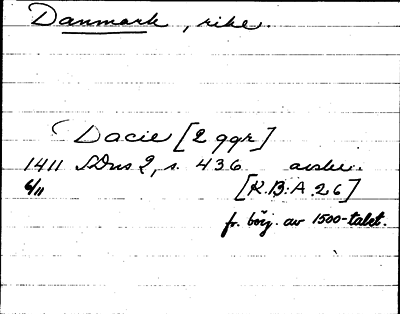 Danmark, rike.
Dacie [2 ggr]
1411 SDns 2, s. 436 avskr.
6/11 [K.B:A 26]
fr. börj. av 1500-talet.